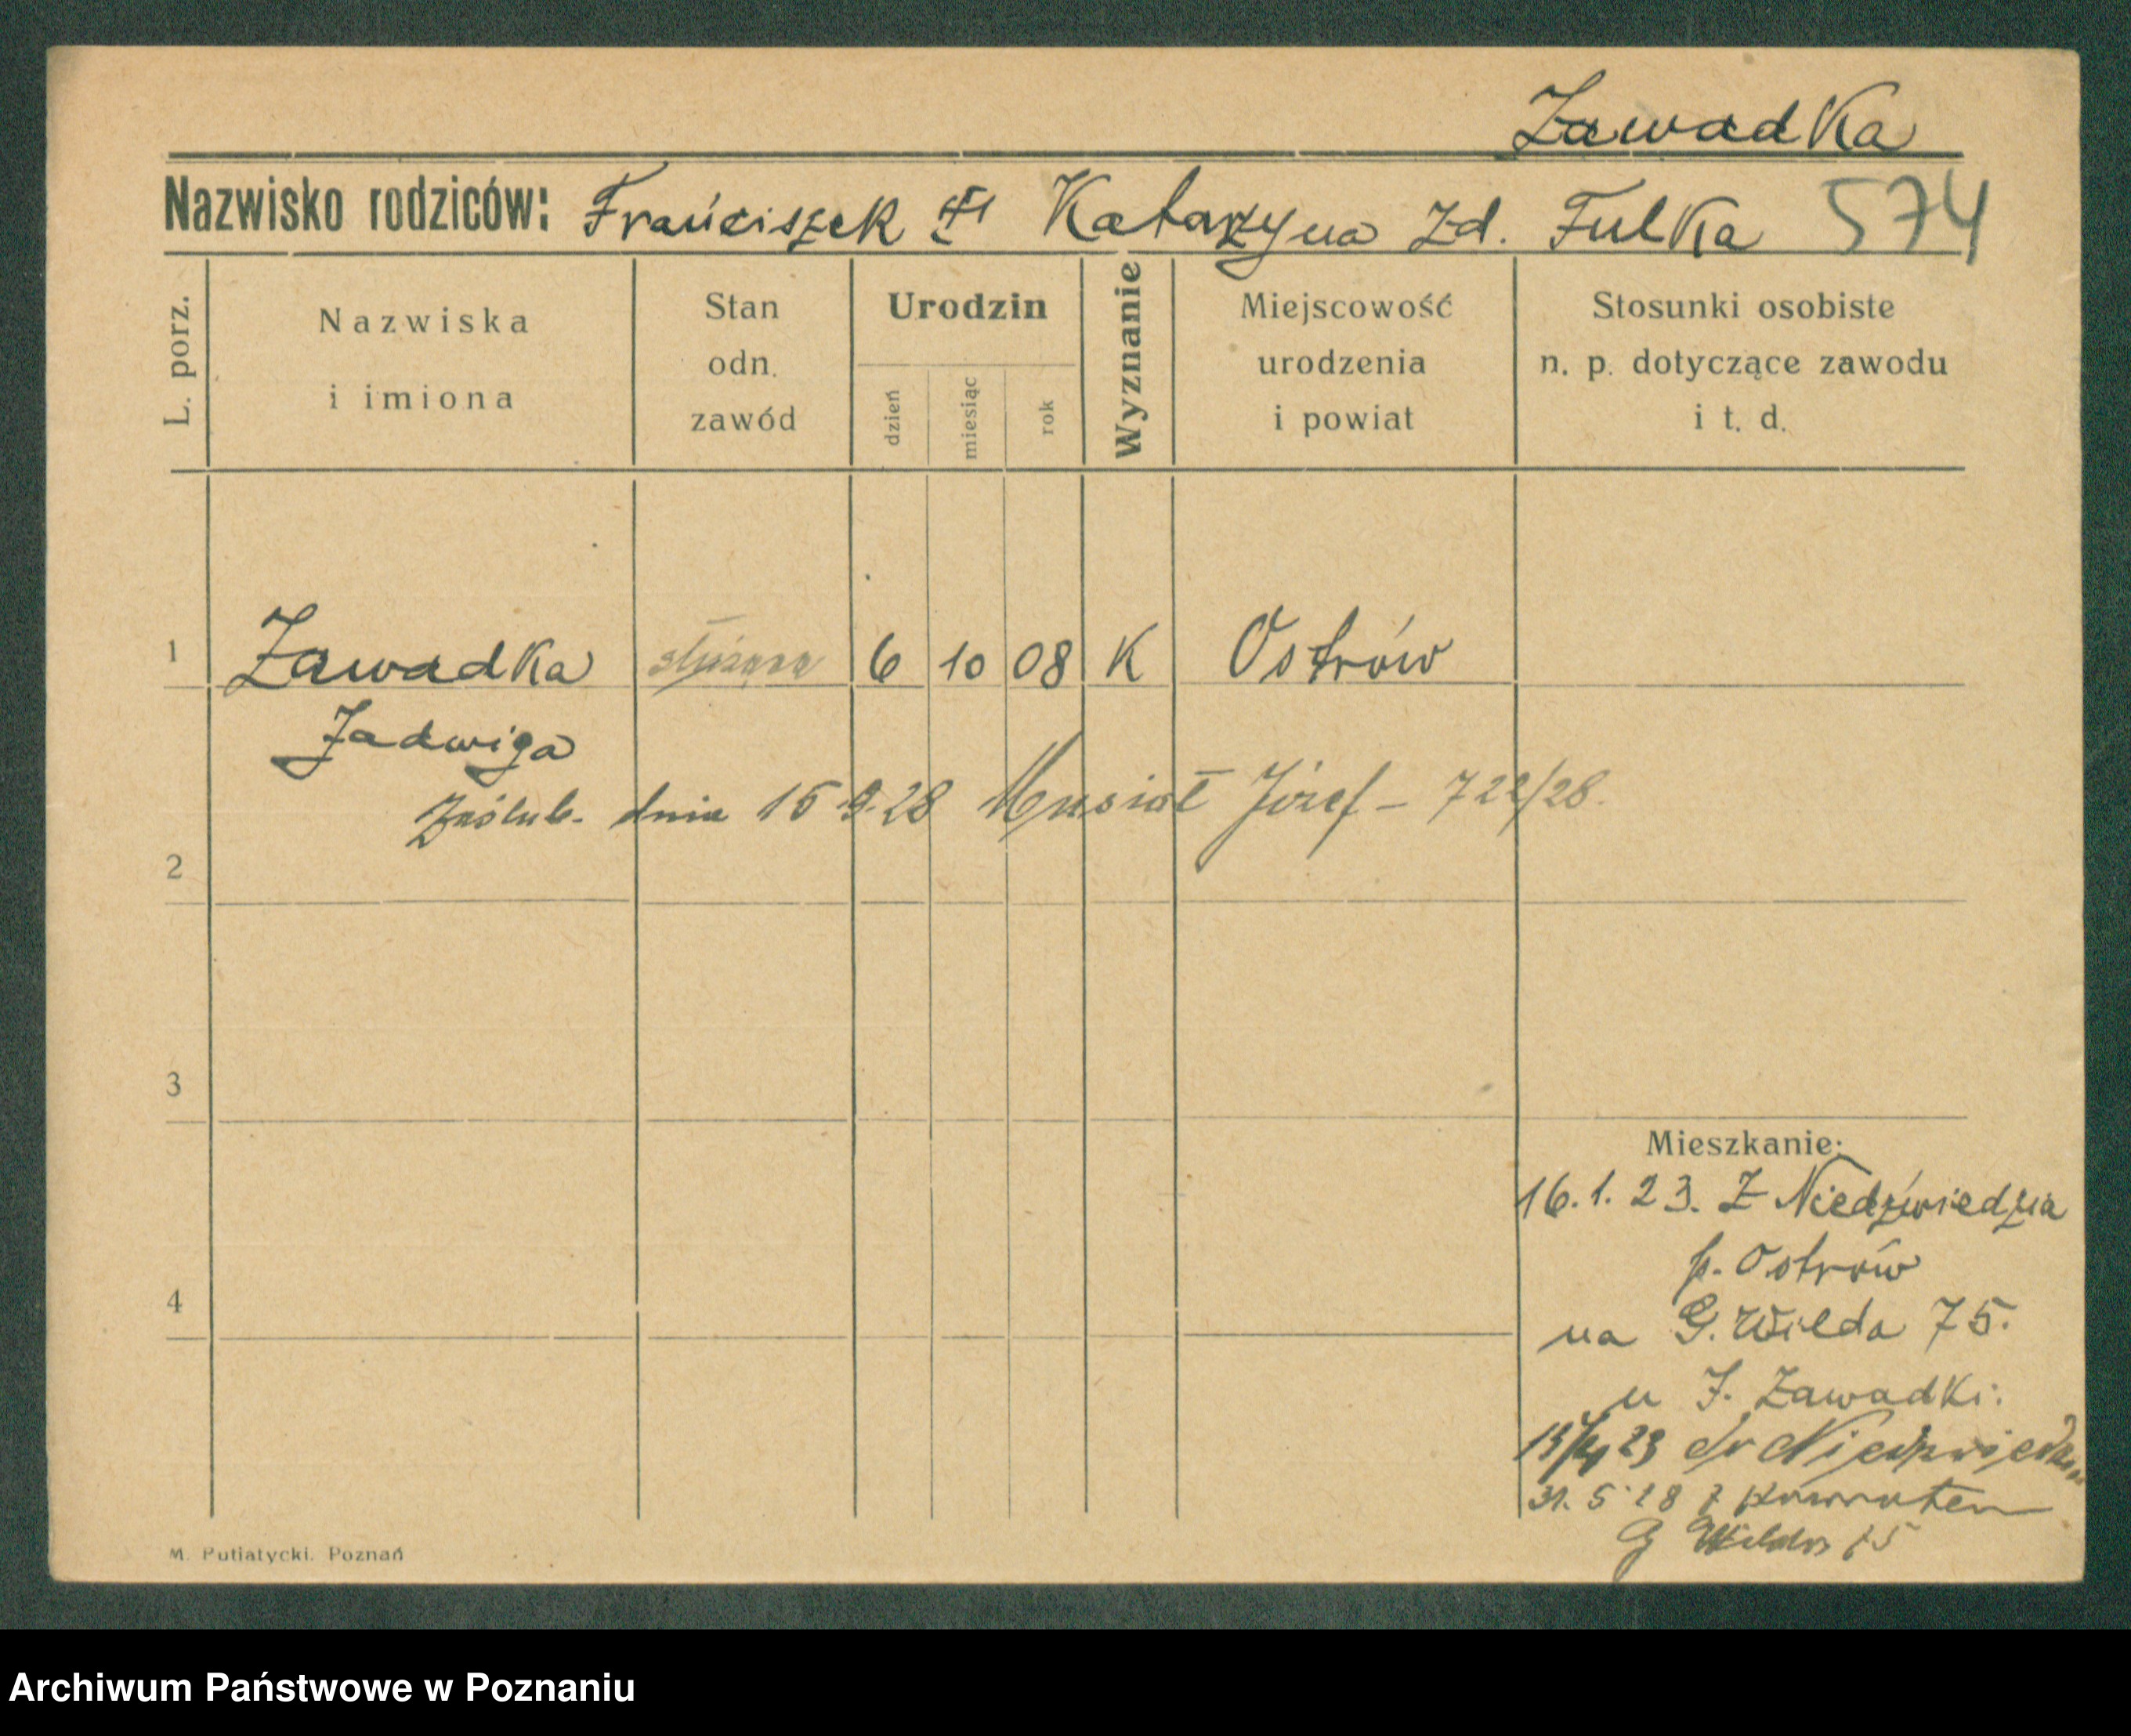 Zawadka
Nazwisko rodziców: Franciszek i Katarzyna zd. Fulka 574
L. porz.
Nazwiska i imiona
Stan odn. zawód
Urodzin
dzień miesiąc rok
Wyznanie
Miejscowość urodzenia i powiat
Stosunki osobiste n. p. dotyczące zawodu i t. d.
1 Zawadka służąca 6 10 08 K Ostrów
Jadwiga
Zaślub. dnia 15 9. 28 Musiał Józef – 722/28.
2
3
Mieszkanie:
16. 1. 23. Z Niedźwiedzia
p. Ostrów
4
na G. Wilda 75.
u J. Zawadki.
23 do
31. 5 28 z powrotem
G Wilda 75
M. Putiatycki. Poznań
Archiwum Państwowe w Poznaniu